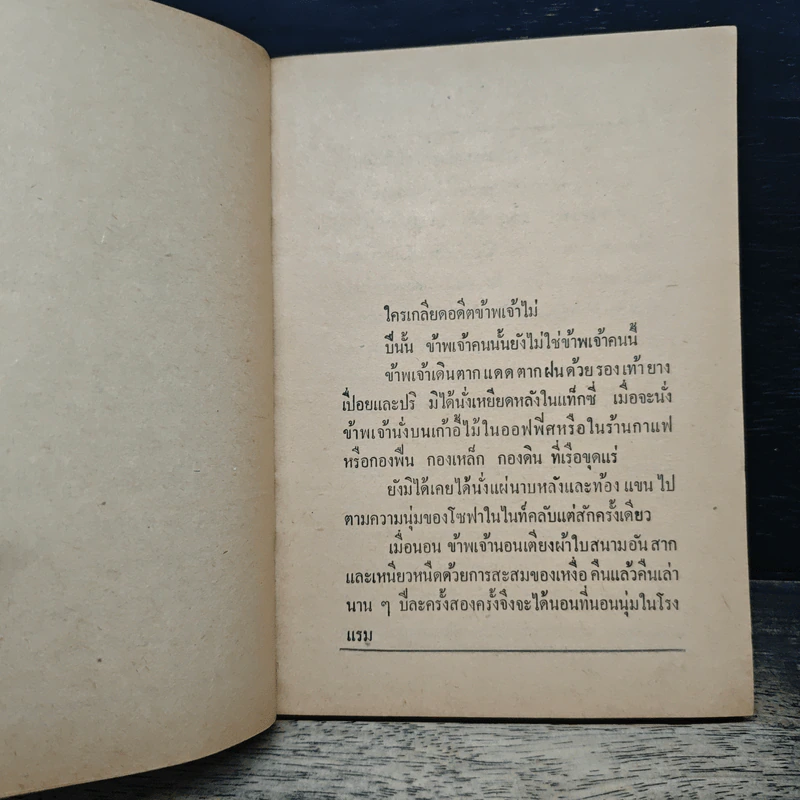 ใครเกลียดอดีตข้าพเจ้าไม่
ปีนั้น ข้าพเจ้าคนนั้นยังไม่ใช่ข้าพเจ้าคนนี้
ข้าพเจ้าเดินตากแดดตากฝนด้วยรองเท้ายาง
เปื่อยและปริ มิได้นั่งเหยียดหลังในแท็กซี่ เมื่อจะนั่ง
ข้าพเจ้านั่งบนเก้าอี้ไม้ในออฟฟิศหรือในร้านกาแฟ
หรือกองฟืน กองเหล็ก กองดิน ที่เรือขุดแร่
ยังมิได้เคยได้นั่งแผ่นาบหลังและท้อง แขน ไป
ตามความนุ่มของโซฟาในไนท์คลับแต่สักครั้งเดียว
เมื่อนอน ข้าพเจ้านอนเตียงผ้าใบสนามอันสาก
และเหนียวหนืดด้วยการสะสมของเหงื่อ คืนแล้วคืนเล่า
นาน ๆ ปีละครั้งสองครั้งจึงจะได้นอนที่นอนนุ่มในโรง
แรม